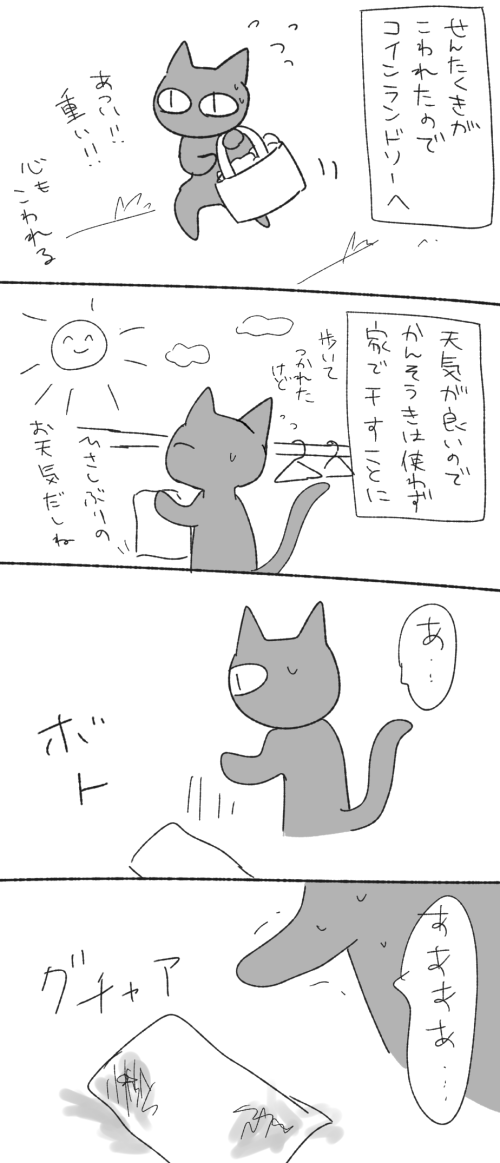 せんたくきが
こわれたので
コインランドリーへ
あつい!!
重い!!
心も
こわれる
天気が良いので
かんそうきは使わず
家で干すことに
歩いて
つかれた
けど
ひさしぶりの
お天気だしね
あ…
ボト
ああああ…
グチャア